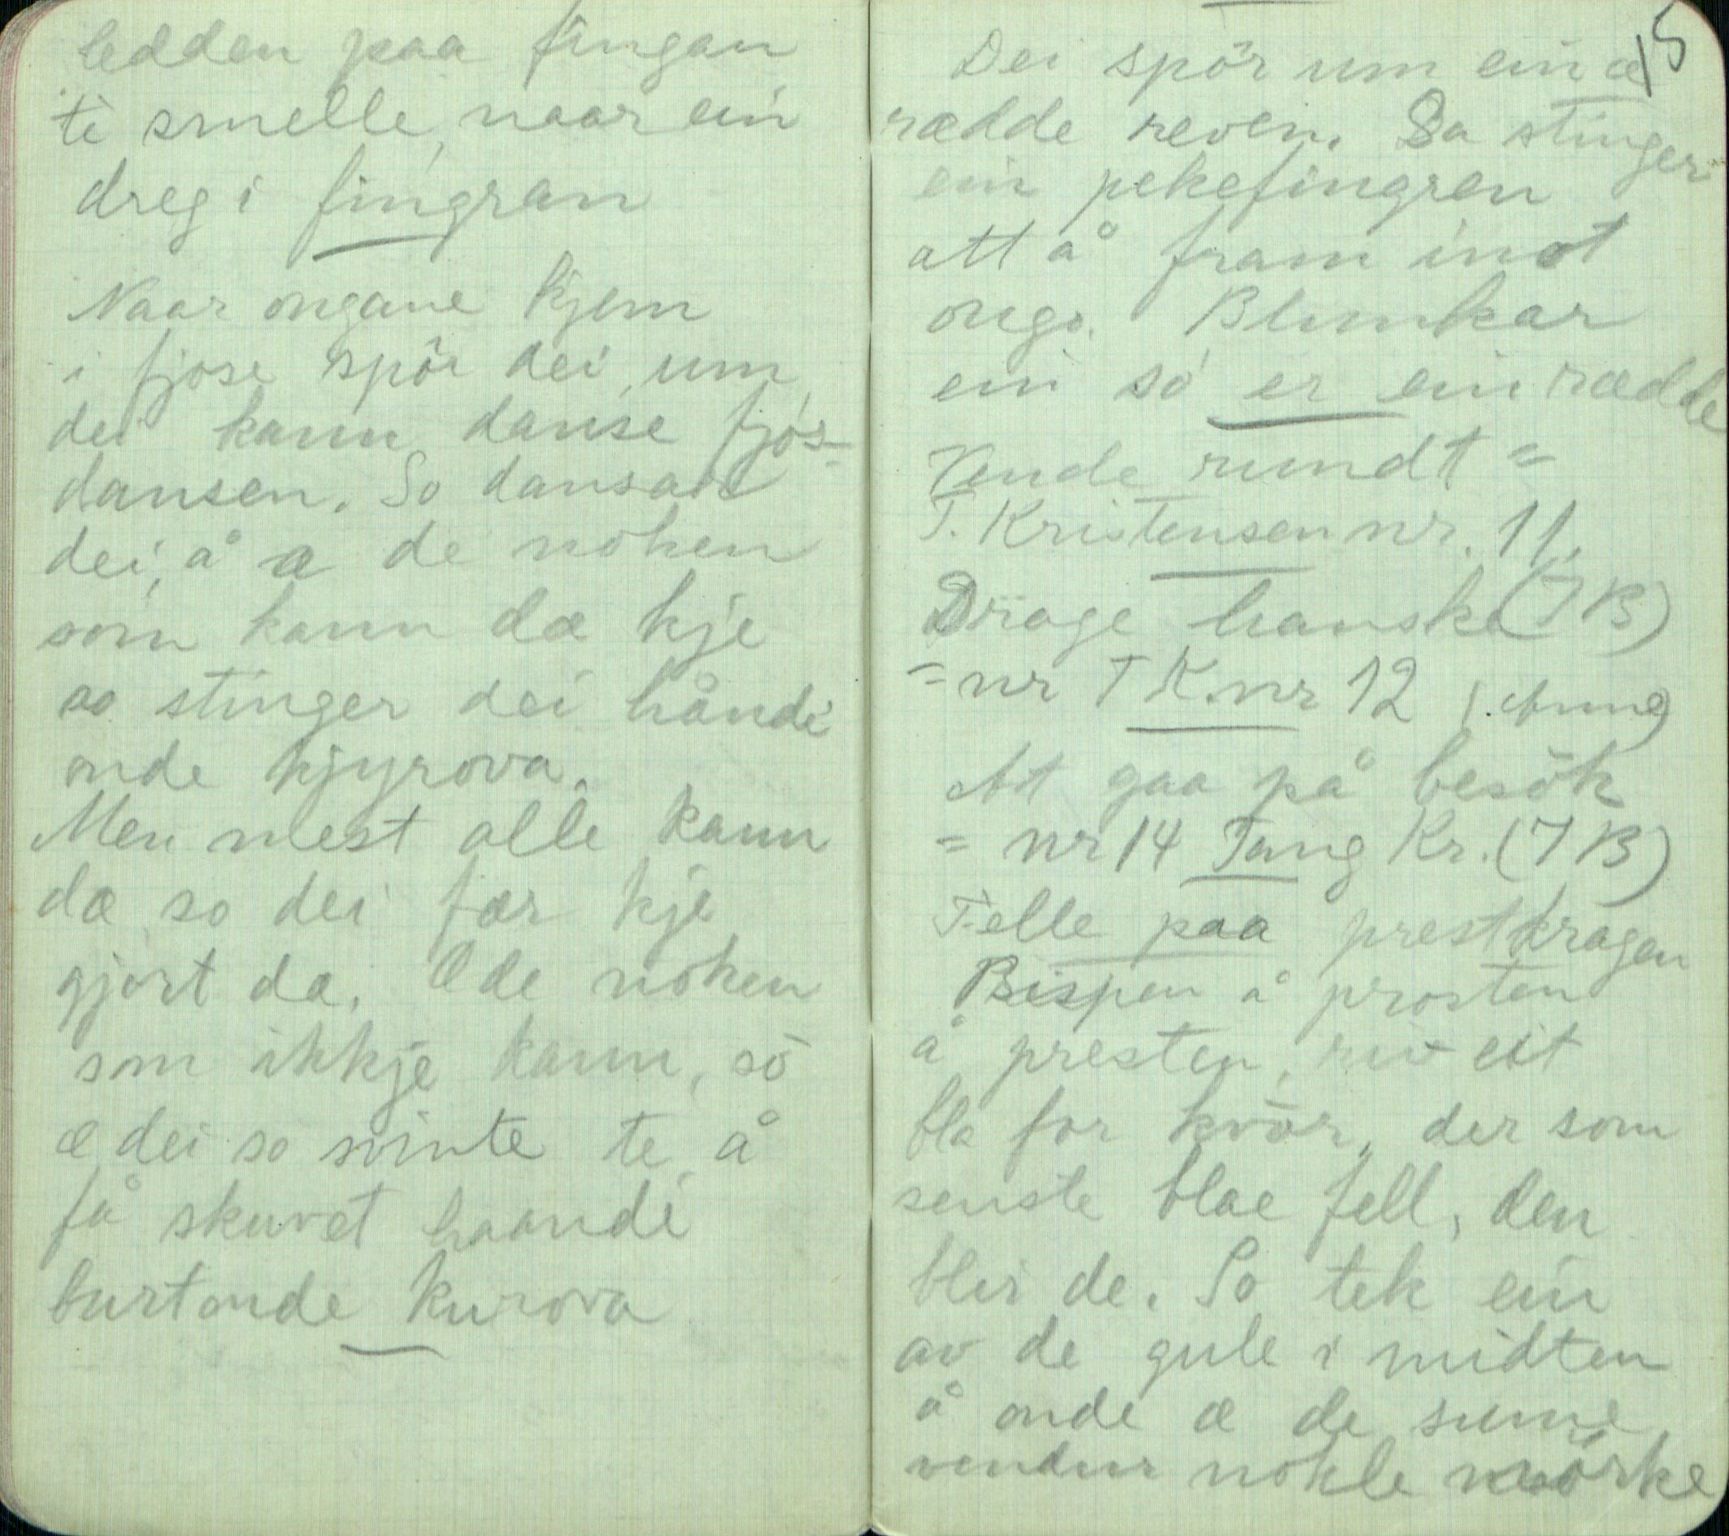 ledden paa fingan
te smelle, naar ein
dreg i fingran
Naar ongane kjem
i fjose spör dei um
dei kann danse fjos-
dansen. So dansar
dei, å æ de noken
som kann dæ kje
so stinger dei håndi
onde kjyrova.
Men mest alle kann
dæ so dei fær kje
gjort da. Æ de noken
som ikkje kann, so
æ dei so svinte te å
få skuvet haandi
burtonde kurova
15
Dei spör um ein æ
rædde reven. Da stinger
ein pekefingren
att å fram imot
ongo. Blunkar
ein so er ein rædde
Vende rundt =
T. Kristensen nr. 11.
Drage hanske (7 B)
= nr T K. nr 12
At gaa på besök
= nr 14 Tang Kr. (7 B)
Telle paa prestkragen
Bispen å prosten
å presten, riv eit
bla for kvær, der som
senste blae fell, den
blir de. So tek ein
av de gule i midten
å onde æ de sume
vendur nokle mörke